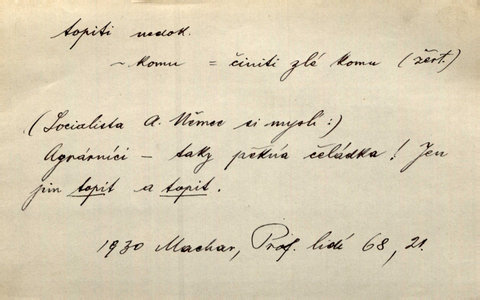 topiti nedok.
~ komu = činiti zlé komu (žert.)
(Socialista A. Němec si myslí:)
Agrárníci – taky pěkná čeládka! Jen
jim topit a topit.
1930 Machar, Prof. lidé 68, 21.